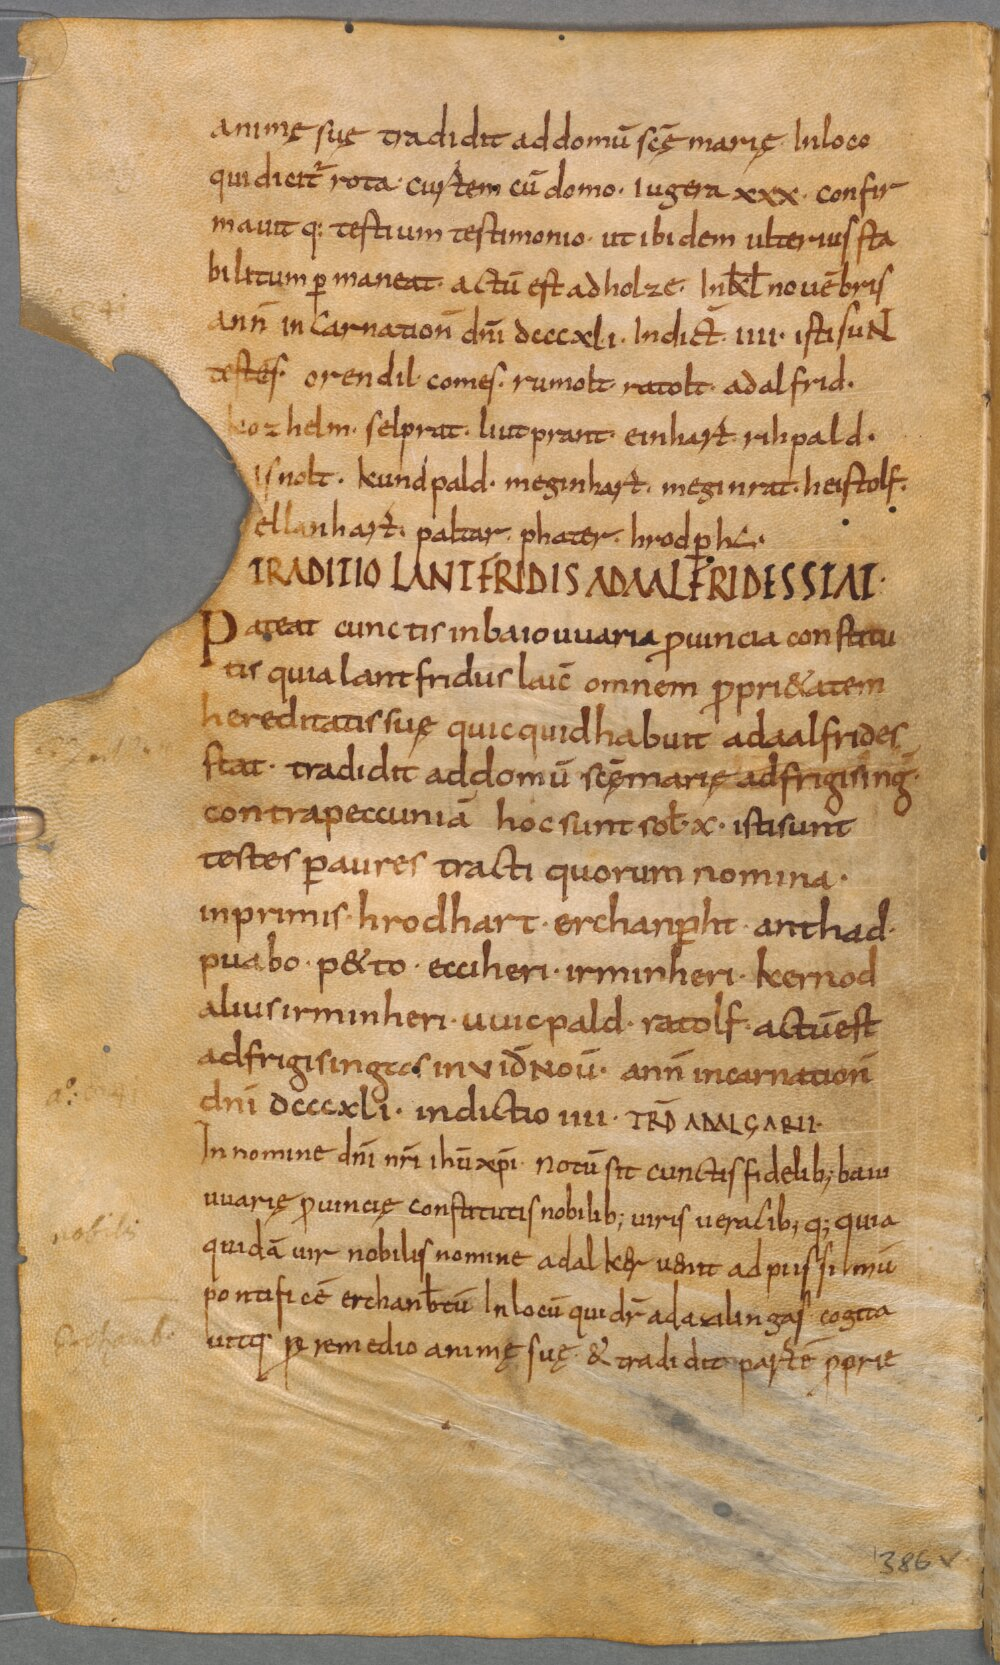 animę suę tradidit ad domū scę̄ marię· In loco
qui dicit᷑ rota· curtem cū domo· iugera xxx· confir
mavit q: testium testimonio· ut ibidem ulterius sta
bilitum p̄ maneat· actū est ad holze· In kł novēbris
ann̄ incarnation̄ dn̄i dcccxli· Indict̄· iiii· isti suN
testes· orendil comes· rumolt· ratolt· adalfrid·
kozhelm· selprat· liutprant· einhart· rihpald·
isnolt· kundpald· meginhart· meginrat· heistolf·
ellanhart· paltar· phater· hrodp̄ht·
TRADITIO LANTFRIDIS AD AALFRIDESSTAT·
Pateat cunctis in baiouuaria ꝓvincia constitu
tis quia lantfridus laic̄ omnem ꝓpri&atem
hereditatis suę quicquid habuit ad aalfrides
stat· tradidit ad domū scę̄ marię ad frigisinḡ·
contra peccuniā hoc sunt soł· x· isti sunt
testes p̄ aures tracti quorum nomina·
inprimis· hrodhart· erchanp̄ht· anthad·
puabo· p&to· ecciheri· irminheri· kernod
alius irminheri· uuicpald· ratolf· actū est
ad frigisingas in vi id̄ Nov̄· ann̄ incarnation̄
dn̄i dcccxli· indictio iiii· TRD̄ ADALGARII·
In nomine dn̄i nr̄i ihū xp̄i· Notū sit cunctis fidelib; baiu
uuarię ꝓvincię constitutis nobilib; viris veracib; q; quia
quidā vir nobilis nomine adalker venit ad piissimū
pontificē erchanb̄tū In locū qui dr̄ ad axilingas· cogita
vitq· ꝓ remedio animę suę & tradidit partē ꝓprie
386 v